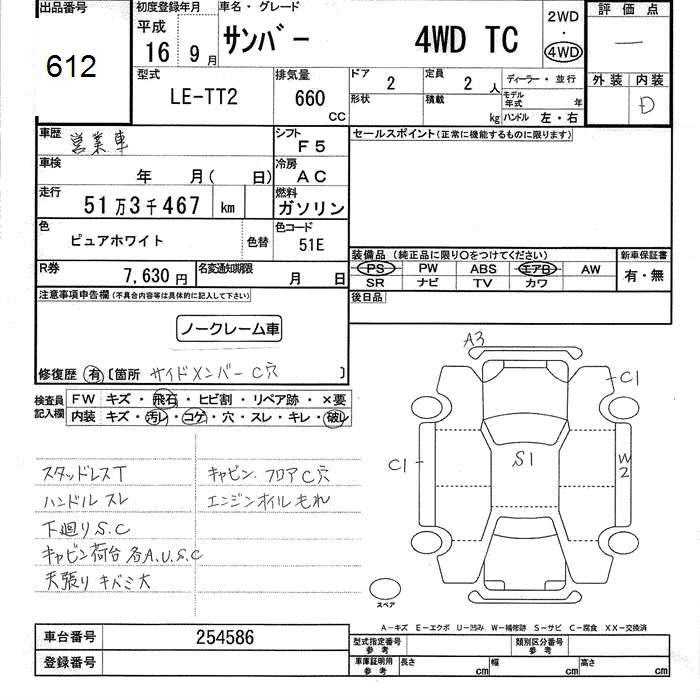 出品番号
612
初度登録年月
平成
16 9月
車名・グレード
サンバー 4WD TC
2WD
・
4WD
評価点
―
外装 内装
D
型式
LE-TT2
排気量
660
CC
ドア
2
定員
2 人
形状
積載
kg
ディーラー・並行
モデル
年式 年
ハンドル 左・右
車歴
営業車
シフト
F5
セールスポイント(正常に機能するものに限ります)
車検
年 月( 日)
冷房
AC
走行
51万3千467 km
燃料
ガソリン
色
ピュアホワイト
色替
色コード
51E
装備品 (純正品に限り〇をつけてください)
PS PW ABS エアB AW
SR ナビ TV カワ
新車保証書
有・無
R券
7,630円
名変通知期限
月 日
後日品
注意事項申告欄(不具合内容等は具体的に記入して下さい)
ノークレーム車
修復歴 有 〔箇所 サイドメンバーC穴 〕
検査員
記入欄
FW キズ・飛石・ヒビ割・リペア跡・×要
内装 キズ・汚れ・コゲ・穴・スレ・キレ・破れ
スタッドレスT
キャビン.フロアC穴
ハンドルスレ
エンジンオイルもれ
下廻りS.C
キャビン荷台 各A.U.S.C
天張りキバミ大
A3
C1
C1
S1
W2
スペア
A-キズ E-エクボ U-凹み W-補修跡 S-サビ C-腐食 XX-交換済
車台番号
254586
登録番号
型式指定番号
参考
類別区分番号
参考
車庫証明用
参考
長さ cm
幅 cm
高さ cm